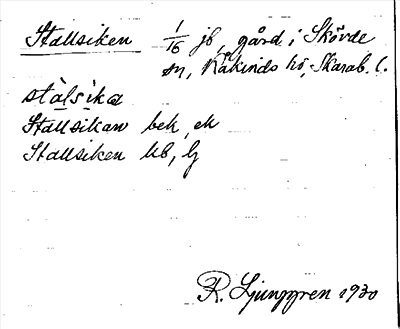 Stallsiken 1/16 jb, gård i Skövde
sn, Kåkinds hd, Skarab. l.
stàlsika
Stallsikan bek, ek
Stallsiken kb, lj
R. Ljunggren 1930